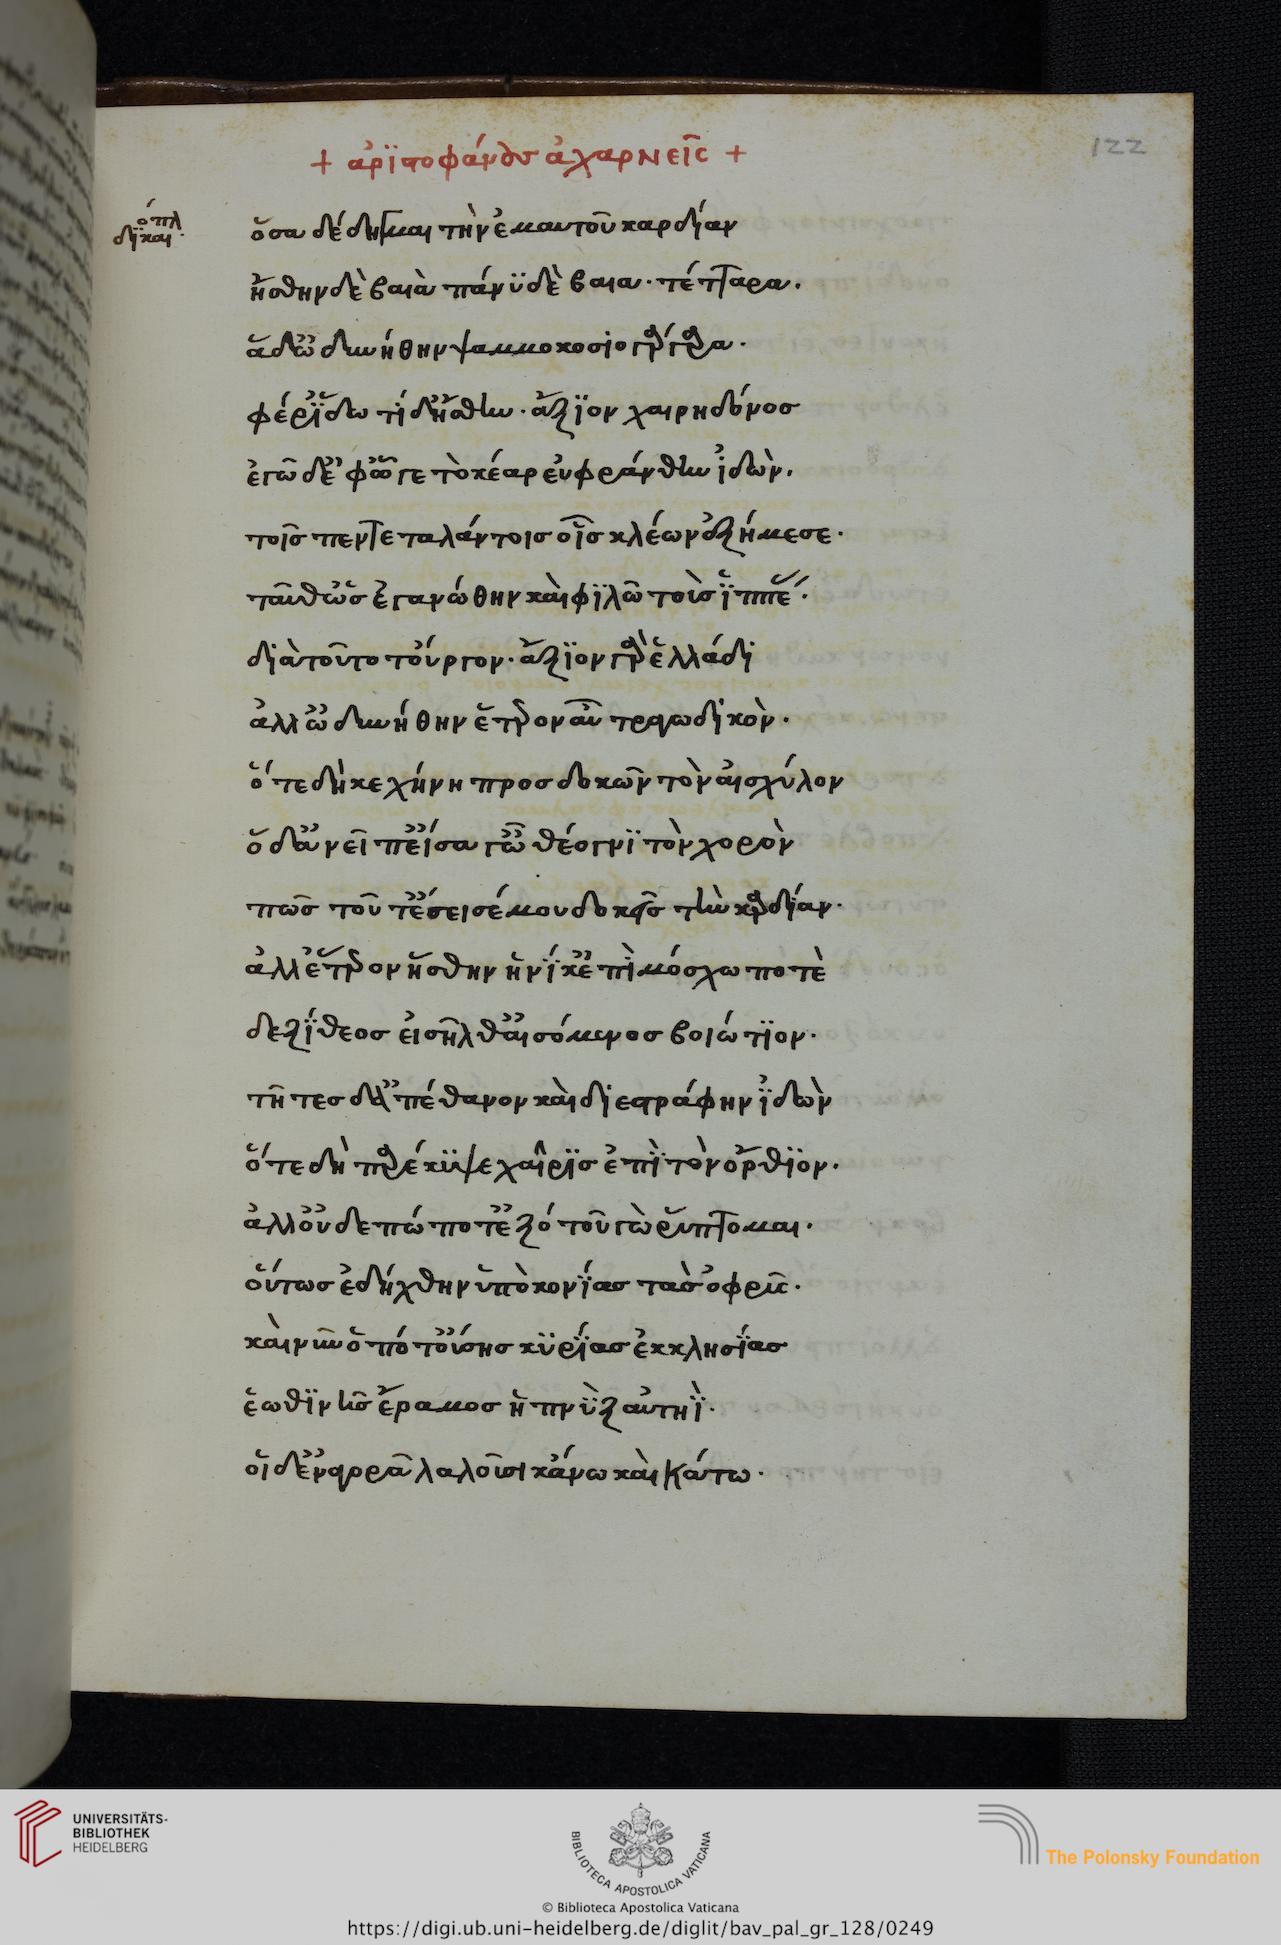 + ἀριστοφάνους ἀχαρνεῖς +
122
ὁ πλ
δίκαι
ὅσα δέδηγμαι τὴν ἐμαυτοῦ καρδίαν
ἥσθην δὲ βαιὰ πάνυ δὲ βαια· τέτταρα.
ἃ δ' ὠδυνήθην ψαμμοκοσιογάργαρα·
φέρ' ἴδω τί δ' ἥσθην· ἄξιον χαιρηδόνος
ἐγὦδ' ἐφ' ᾧ γε τὸ κέαρ εὐφράνθην ἰδὼν.
τοῖς πεντε ταλάντοις οἷς κλέων ἐξήμεσε·
ταῦθ' ὡς ἐγανώθην καὶ φιλῶ τοὺς ἱππέ·
διὰ τοῦτο τοὖργον· ἄξιον γὰρ ἑλλάδι
ἀλλ' ὠδυνήθην ἕτερον αὖ τραγωδικὸν·
ὅτε δὴ κεχήνη προσδοκῶν τὸν αἰσχύλον
ὁ δ' ἀνεῖπ' εἴσαγ' ὦ θέογνι τὸν χορὸν
πῶς τοῦτ' ἔσεισέ μου δοκεῖς τὴν καρδίαν·
ἀλλ' ἕτερον ἥσθην ἡνίκ' ἐπὶ μόσχω ποτὲ
δεξίθεος εἰσῆλθ' ἀισόμενος βοιώτιον·
τῆτες δ' ἀπέθανον καὶ διεστράφην ἰδὼν
ὅτε δὴ παρέκυψε χαῖρις ἐπὶ τὸν ὄρθιον·
ἀλλ' οὐδεπώποτ' ἐξ ὅτου γὼ ῥύπτομαι·
οὕτως ἐδήχθην ὑπὸ κονίας τὰς ὀφρῦς·
καὶ νῦν ὁπότ' οὔσης κυρίας ἐκκλησίας
ἑωθινῆς ἔραμος ἡ πνὺξ αὑτηὶ·
οἱ δ' ἐν ἀγορᾶ λαλοῦσι κἄνω καὶ κάτω·
UNIVERSITÄTS-
BIBLIOTHEK
HEIDELBERG
BIBLIOTECA APOSTOLICA VATICANA
The Polonsky Foundation
© Biblioteca Apostolica Vaticana
https://digi.ub.uni-heidelberg.de/diglit/bav_pal_gr_128/0249